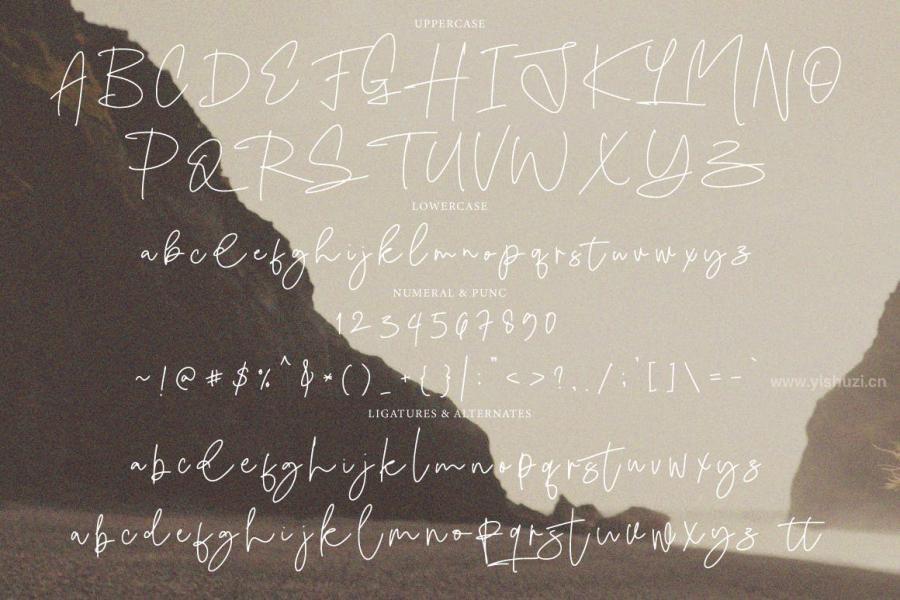 UPPERCASE
ABCDEFGHIJKLMNO
PQRSTUVWXYZ
LOWERCASE
abcdefghijklmnopqrstuvwxyz
NUMERAL & PUNC
1234567890
~!@#$%^&*()_+{}|:"<>?,./;'[]\=-`
www.yishuzi.cn
LIGATURES & ALTERNATES
abcdefghijklmnopqrstuvwxyz
abcdefghijklmnopqrstuvwxyz tt